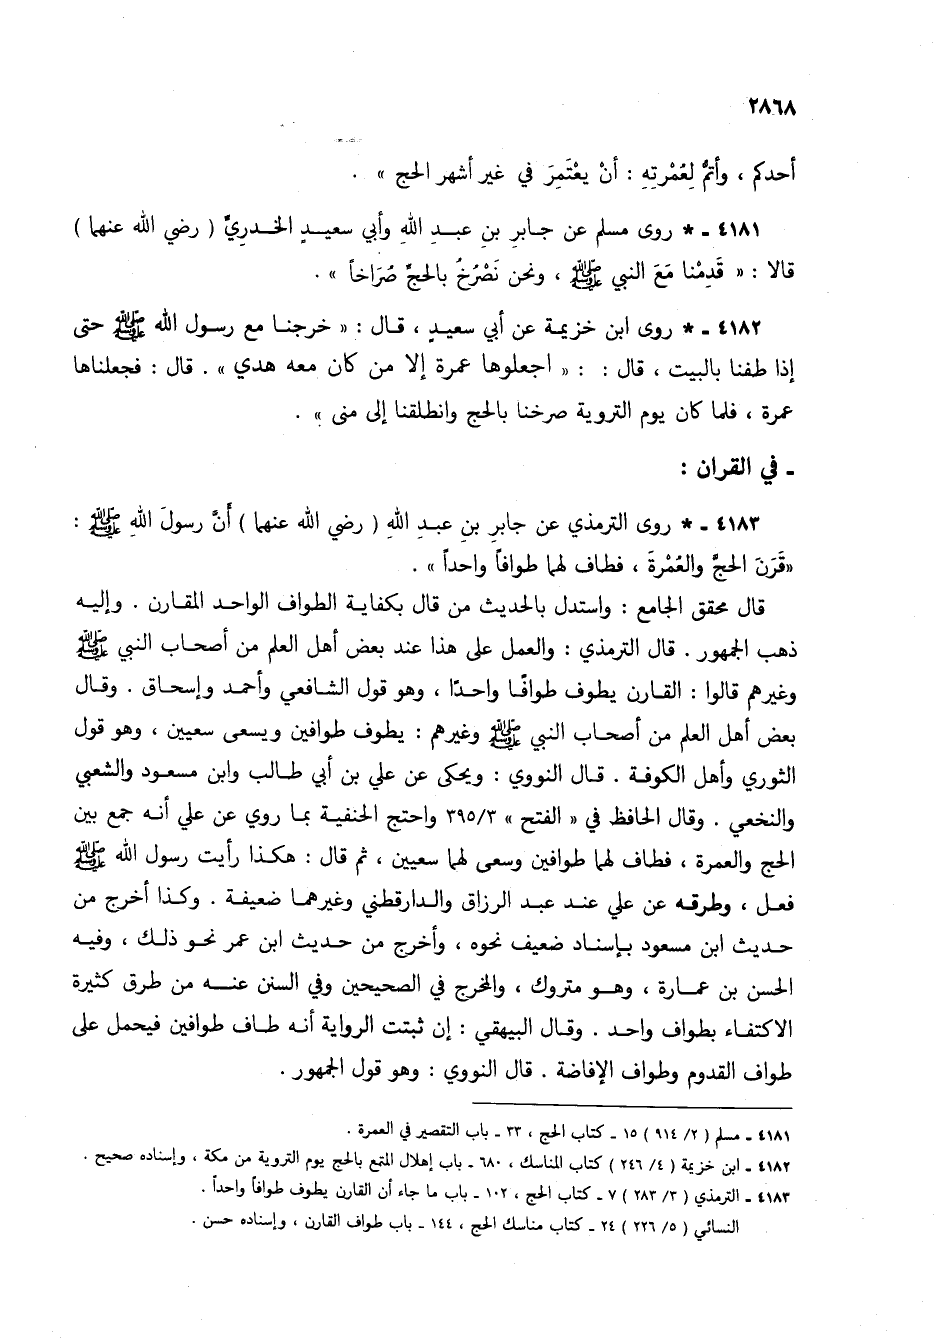 ٢٨٦٨
أحدكم ، وأتمُّ لِعُمْرتِهِ : أنْ يعْتَمِرَ في غير أشهر الحج » .
٤١٨١ ـ * روى مسلم عن جابرِ بنِ عبدِ اللهِ وأبي سعيدٍ الخدريِّ ( رضي الله عنهما )
قالا : « قَدِمْنا مَعَ النبي ﷺ ، ونحن نَصْرُخُ بالحجِّ صُرَاخاً » .
٤١٨٢ ـ * روى ابن خزيمة عن أبي سعيدٍ ، قال : « خرجنا مع رسول الله ﷺ حتى
إذا طفنا بالبيت ، قال : : « اجعلوها عمرة إلا من كان معه هدي » . قال : فجعلناها
عمرة ، فلما كان يوم التروية صرخنا بالحج وانطلقنا إلى منى » .
ـ في القران :
٤١٨٣ ـ * روى الترمذي عن جابرِ بنِ عبدِ اللهِ ( رضي الله عنهما ) أَنَّ رسولَ اللهِ ﷺ :
«قَرَنَ الحجَّ والعُمْرةَ ، فطاف لهما طوافاً واحداً » .
قال محقق الجامع : واستدل بالحديث من قال بكفاية الطواف الواحد المقارن . وإليه
ذهب الجمهور . قال الترمذي : والعمل على هذا عند بعض أهل العلم من أصحاب النبي ﷺ
وغيرهم قالوا : القارن يطوف طوافًا واحدًا ، وهو قول الشافعي وأحمد وإسحاق . وقال
بعض أهل العلم من أصحاب النبي ﷺ وغيرهم : يطوف طوافين ويسعى سعيين ، وهو قول
الثوري وأهل الكوفة . قال النووي : ويحكى عن علي بن أبي طالب وابن مسعود والشعبي
والنخعي . وقال الحافظ في « الفتح » ٣٩٥/٣ واحتج الحنفية بما روي عن علي أنه جمع بين
الحج والعمرة ، فطاف لهما طوافين وسعى لهما سعيين ، ثم قال : هكذا رأيت رسول الله ﷺ
فعل ، وطرقه عن علي عند عبد الرزاق والدارقطني وغيرهما ضعيفة . وكذا أخرج من
حديث ابن مسعود بإسناد ضعيف نحوه ، وأخرج من حديث ابن عمر نحو ذلك ، وفيه
الحسن بن عمارة ، وهو متروك ، والمخرج في الصحيحين وفي السنن عنه من طرق كثيرة
الاكتفاء بطواف واحد . وقال البيهقي : إن ثبتت الرواية أنه طاف طوافين فيحمل على
طواف القدوم وطواف الإفاضة . قال النووي : وهو قول الجمهور .
٤١٨١ ـ مسلم ( ٢/ ٩١٤ ) ١٥ ـ كتاب الحج ، ٣٣ ـ باب التقصير في العمرة .
٤١٨٢ ـ ابن خزيمة ( ٤/ ٢٤٦ ) كتاب المناسك ، ٦٨٠ ـ باب إهلال المتمتع بالحج يوم التروية من مكة ، وإسناده صحيح .
٤١٨٣ ـ الترمذي ( ٣/ ٢٨٣ ) ٧ ـ كتاب الحج ، ١٠٢ ـ باب ما جاء أن القارن يطوف طوافاً واحداً .
النسائي ( ٥/ ٢٢٦ ) ٢٤ ـ كتاب مناسك الحج ، ١٤٤ ـ باب طواف القارن ، وإسناده حسن .